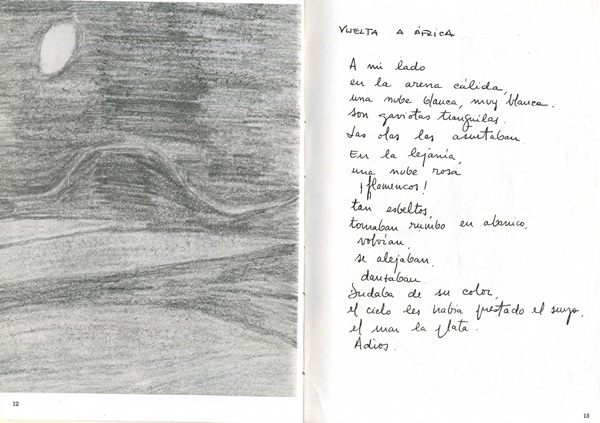 VUELTA A ÁFRICA
A mi lado
en la arena cálida,
una nube blanca, muy blanca.
Son gaviotas tranquilas.
Las olas las asustaban.
En la lejanía,
una nube rosa
¡flamencos!
tan esbeltos,
tomaban rumbo en abanico,
volvían,
se alejaban,
danzaban.
Dudaba de su color,
el cielo les había prestado el suyo,
el mar la plata.
Adios.
12
13